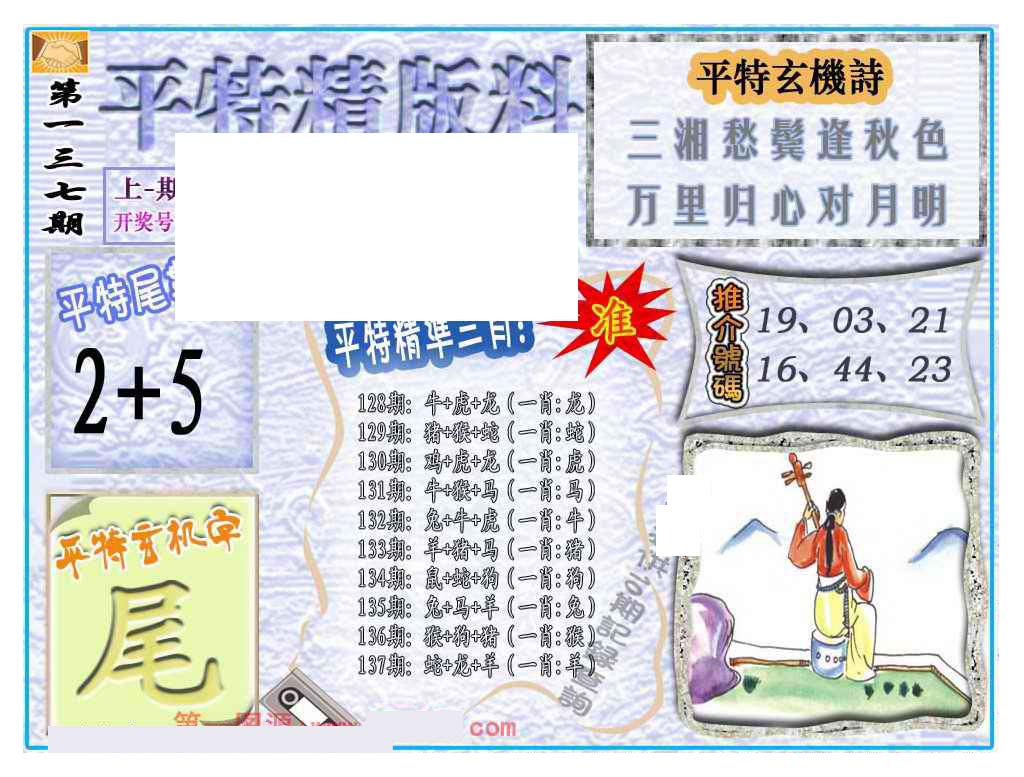 第一三七期
平特精版料
上-期
开奖号
平特玄機詩
三湘愁鬓逢秋色
万里归心对月明
平特尾
2+5
准
推介號碼
19、03、21
16、44、23
平特精準三肖!
128期: 牛+虎+龙(一肖:龙)
129期: 猪+猴+蛇(一肖:蛇)
130期: 鸡+虎+龙(一肖:虎)
131期: 牛+猴+马(一肖:马)
132期: 兔+牛+虎(一肖:牛)
133期: 羊+猪+马(一肖:猪)
134期: 鼠+蛇+狗(一肖:狗)
135期: 兔+马+羊(一肖:兔)
136期: 猴+狗+猪(一肖:猴)
137期: 蛇+龙+羊(一肖:羊)
平特玄机字
尾
供3期記録查詢
com